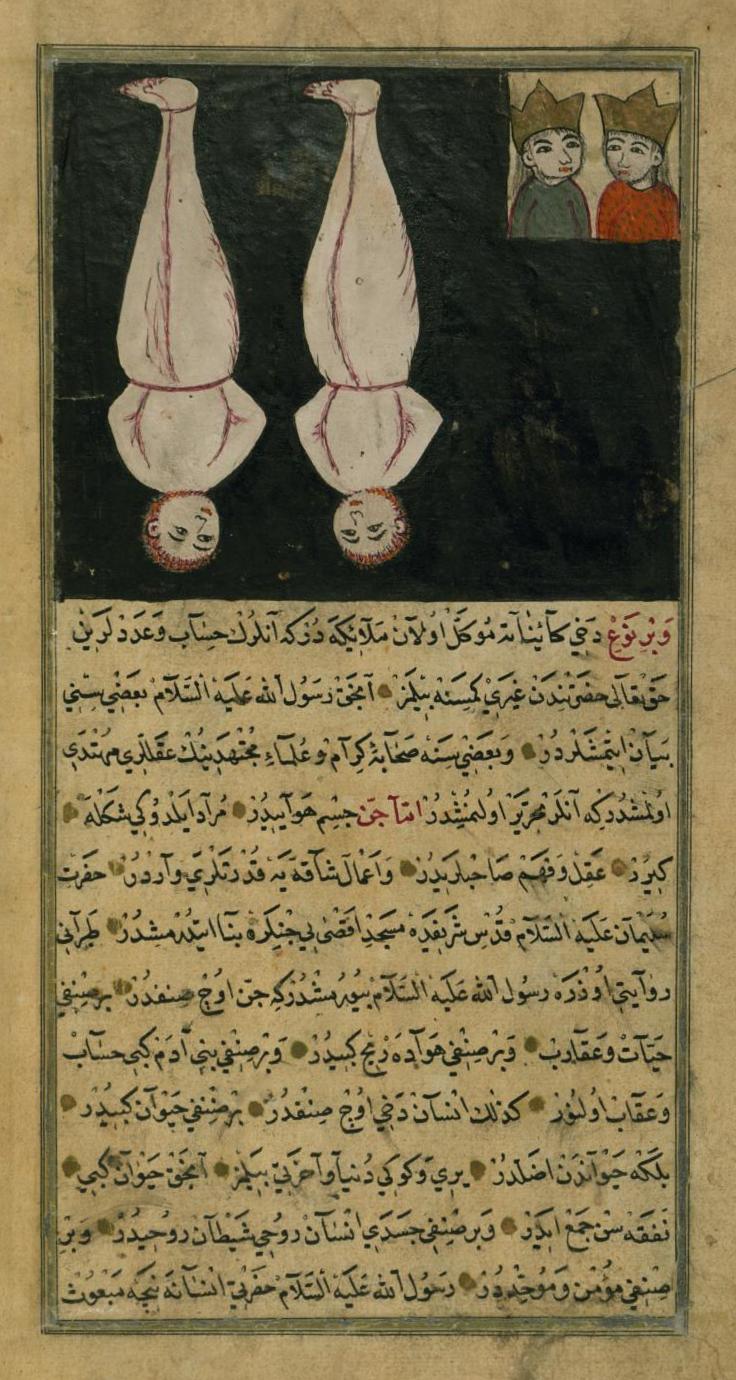 وَبِرْ نَوْعِ دَخِي كَآئِنَاتَه مُوَكَّلْ اُولَانْ مَلَآئِكَه دُرْكه آنلَرُكْ حِسَابْ وَعَدَدْ لَرِينْ
حَقْ تَعَالَى حَضْرَتِنْدَنْ غَيْرِي كِمْسَنَه بِيلْمَزْ آنجَقْ رَسُولُ اللهْ عَلَيْهِ السَّلَامْ بَعْضِي سِنِي
بَيَانْ اِيتْمِشْلَرْدُرْ وَبَعْضِي سِنَه صَحَابَهٔ كِرَامْ وَعُلَمَاءِ مُجْتَهِدِينُكْ عَقْللَرِي مُهْتَدِي
اولمشدركه آنلَرْ اُولنمِشْدُرْ امّا جِنّ جِسْمِ هَوَآئِيدُرْ مُرَادْ ايلدوكي شَكْلَه
كِيرَرْ عَقِلْ وَفَهِمْ صَاحِبلَرِيدُرْ وَاَعْمَالِ شَاقَّه يَه قُدْرَتْلَرِي وَارْدُرْ حَضْرَتِ
سُلَيْمَانْ عَلَيْهِ السَّلَامْ قُدْسِ شَرِيفْدَه مَسْجِدِ اَقْصَى يِي جِنْلَرَه بِنَا ايتدرمشدر طَبَرَانِي
رِوَايَتِي اُوزْرَه رَسُولُ اللهْ عَلَيْهِ السَّلَامْ بيُورمشْدُرْكه جِنّ اُوچْ صِنفْدُرْ بر صِنْفِي
حَيَّاتْ وَعَقَارِبْ وَبِرْ صِنْفِي هَوَادَه رِيحْ كِبِيدُرْ وَبِرْ صِنْفِي بَنِي آدَمْ كِبِي حِسَابْ
وَعِقَابْ اُولنُورْ كَذَلِكْ اِنْسَانْ دَخِي اُوچْ صِنفْدُرْ بِرْ صِنْفِي حَيْوَانْ كِبِيدُرْ
بَلكَه حَيْوَانْدَنْ اَضَلْدُرْ يِري وَكوكي دُنْيَا وَآخِرَتِي بِيلْمَزْ آنجَقْ حَيْوَانْ كِبِي
نَفَقَه سِنْ جَمْعْ اِيدَرْ وَبِرْ صِنْفِي جَسَدِي اِنْسَانْ رُوحِي شَيْطَانْ رُوحِيدُرْ وَبِرْ
صِنْفِي مُؤْمِنْ وَمُوَحِّدْدُرْ رَسُولُ اللهْ عَلَيْهِ السَّلَامْ حَضْرَتِي اِنْسَانَه نِيجَه مَبْعُوثْ